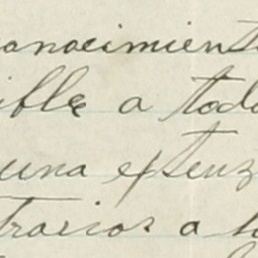 onocimient
ible a tod
una extenz
trarios a l